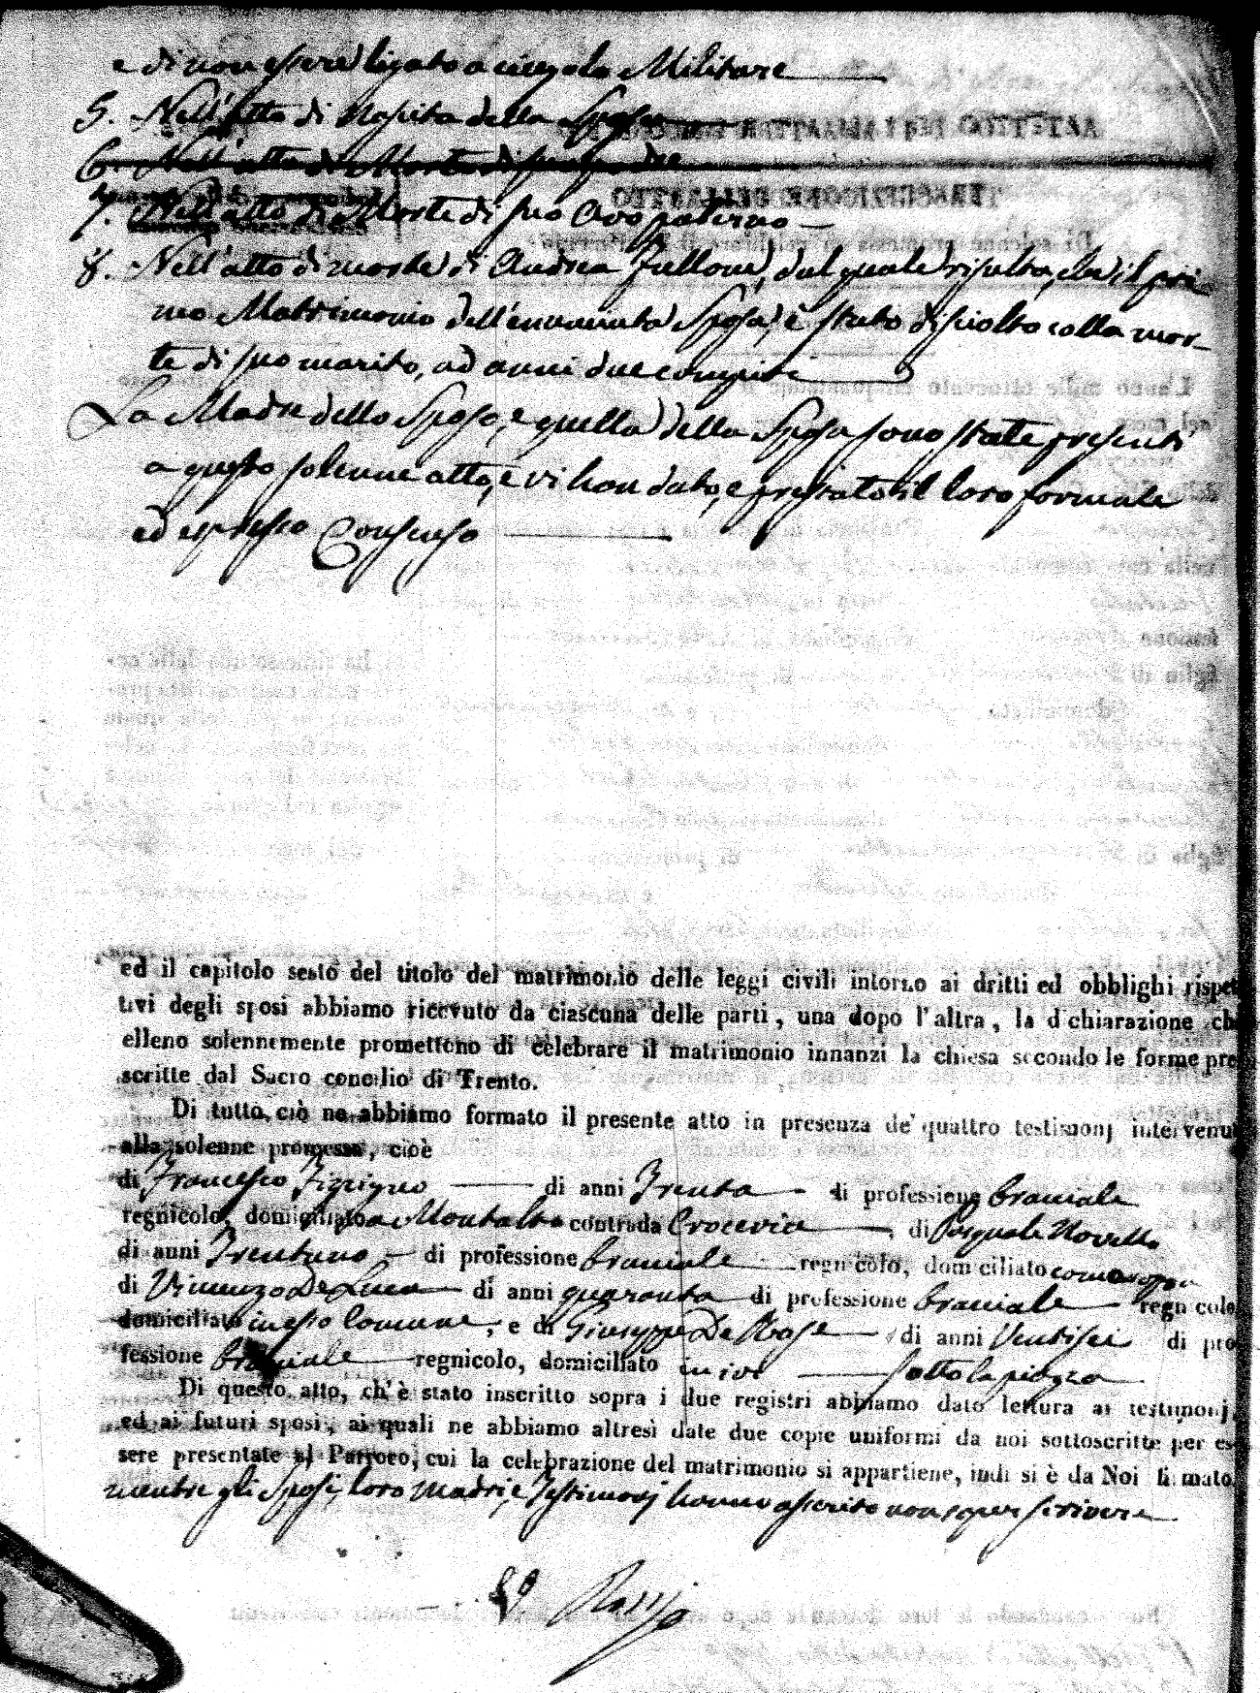 e di non essere ligato a cingolo Militare
5. Nell'atto di Nascita della Sposa
6. Nell'atto di Morte di suo Padre
7. Nell'atto di Morte di suo Avo paterno
8. Nell'atto di morte di Andrea Fullone, dal quale risulta, che il pri-
mo Matrimonio dell'enunciata Sposa, è stato disciolto colla mor-
te di suo marito, ad anni due compite
La Madre dello Sposo, e quella della Sposa sono state presenti
a questo solenne atto, e vi han dato, e prestato il loro formale
ed espresso Consenso
ed il capitolo sesto del titolo del matrimonio delle leggi civili intorno ai dritti ed obblighi rispet
tivi degli sposi abbiamo ricevuto da ciascuna delle parti, una dopo l'altra, la dichiarazione ch
elleno solennemente promettono di celebrare il matrimonio innanzi la chiesa secondo le forme pre
scritte dal Sacro concilio di Trento.
Di tutto ciò ne abbiamo formato il presente atto in presenza de' quattro testimonj intervenu
alla solenne promessa, cioè
di Francesco di anni Trenta di professione bracciale
regnicolo, domiciliato a Montalto contrada Croceria, di Pasquale Novello
di anni Trentuno di professione bracciale regnicolo, domiciliato come sopra
di Vincenzo De Luca di anni quaranta di professione bracciale regnicolo
domiciliato in esso Comune, e di Giuseppe De Rose di anni Ventisei di pro
fessione bracciale regnicolo, domiciliato in ivi sotto la piazza
Di questo atto, ch'è stato inscritto sopra i due registri abbiamo dato lettura ai testimonj,
ed ai futuri sposi, ai quali ne abbiamo altresì date due copie uniformi da noi sottoscritte per es
sere presentate al Parroco, cui la celebrazione del matrimonio si appartiene, indi si è da Noi firmato
mentre gli Sposi, loro Madri, e Testimonj hanno asserito non saper scrivere